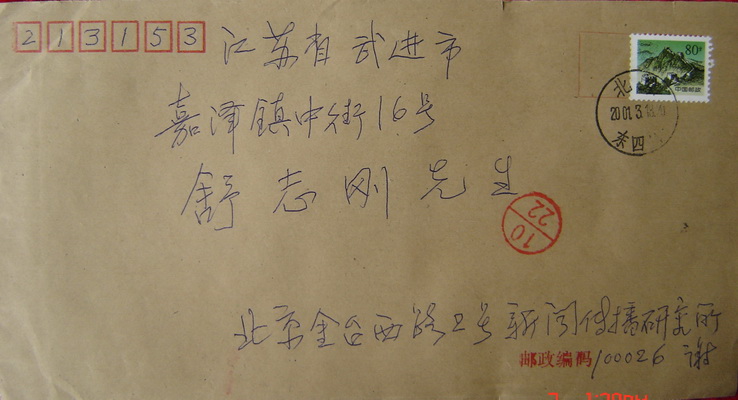 213153
江苏省武进市
嘉泽镇中街16号
舒志刚先生
80分
中国邮政
北
2001.3.
东四
10
22
北京金台西路2号新闻传播研究所
邮政编码100026 谢